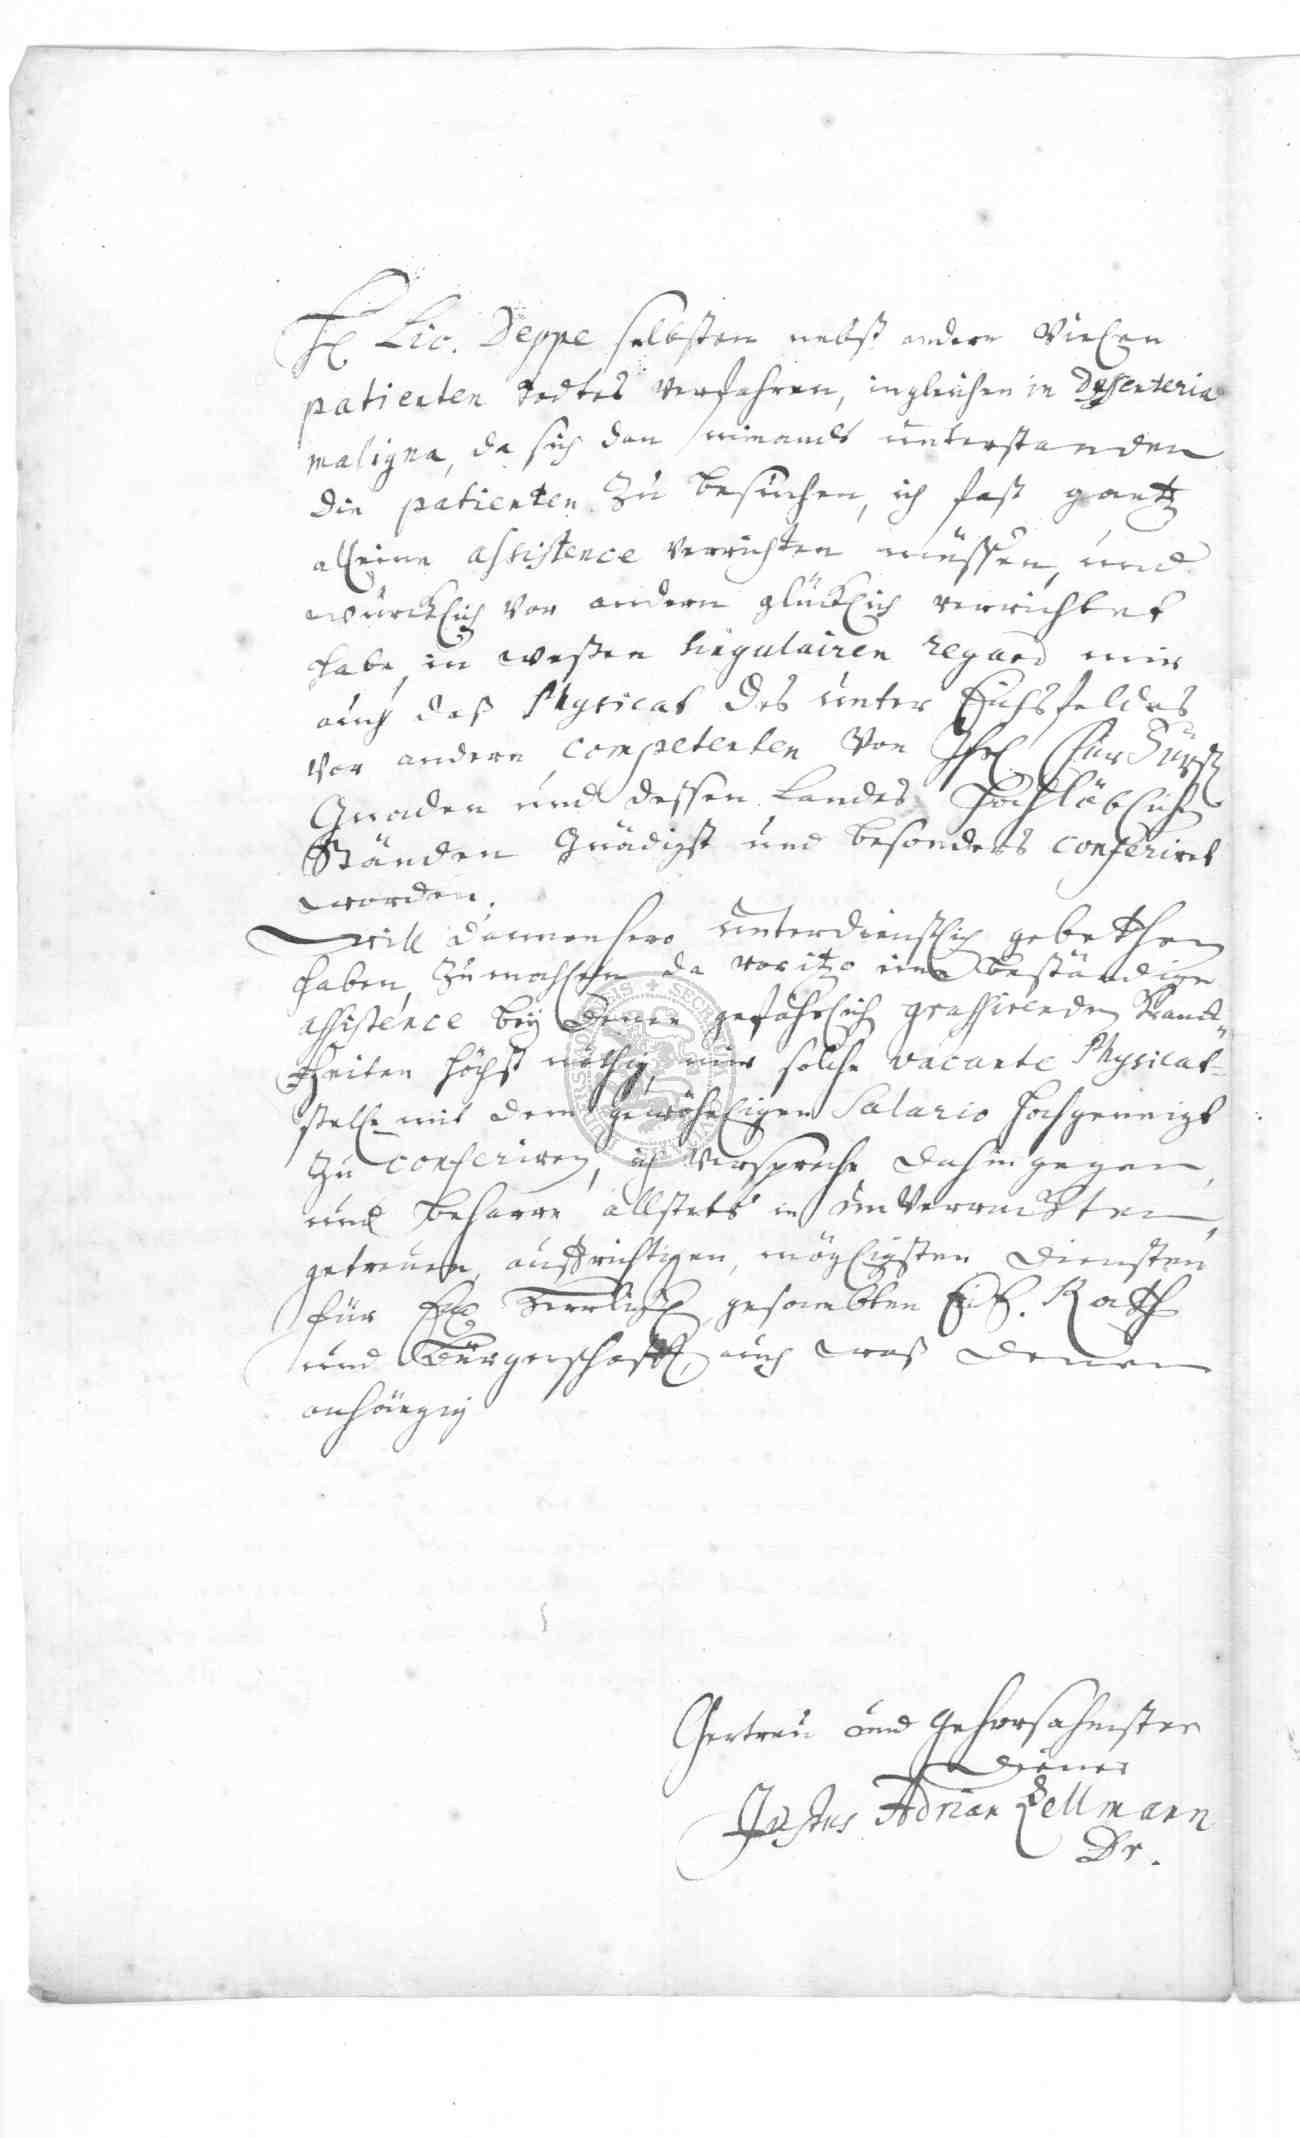 H. Lic. Deppe selbsten nebst andern vielen
patienten todtes verfahren, ingleichen in Dysenteria
maligna, da sich dan niemandt unterstanden
die patienten zu besuchen, ich fast gantz
alleine assistence verrichten müssen, und
würcklich vor andern glücklich verrichtet
habe, in weßen singulairen regard mir
auch daß Physicat des unter Eichsfeldes
vor andern competenten von Ihr. ChurFürstl
Gnaden und dessen Landes Hochlöbliche
Ständen Gnädigst und besonders conferiret
worden.
Will dannenhero unterdienstlich gebethen
haben, zumahlen da voritzo eine beständige
assistence bey denen gefährlich grassirenden Kranck-
heiten höchst nöthig, mir solche vacante Physicat-
stelle mit dem gewöhnligen Salario hochgeneigt
zu conferiren, ich verspreche dahingegen,
und beharre allstets in unverruckten,
getreuen, auffrichtigen, mögligsten Diensten
für Herrligk. gesambten Rath
und Bürgerschafft, auch waß denen
anhängig
Gertreu und gehorsahmster
Diener
Justus Adrian Zellmann
Dr.